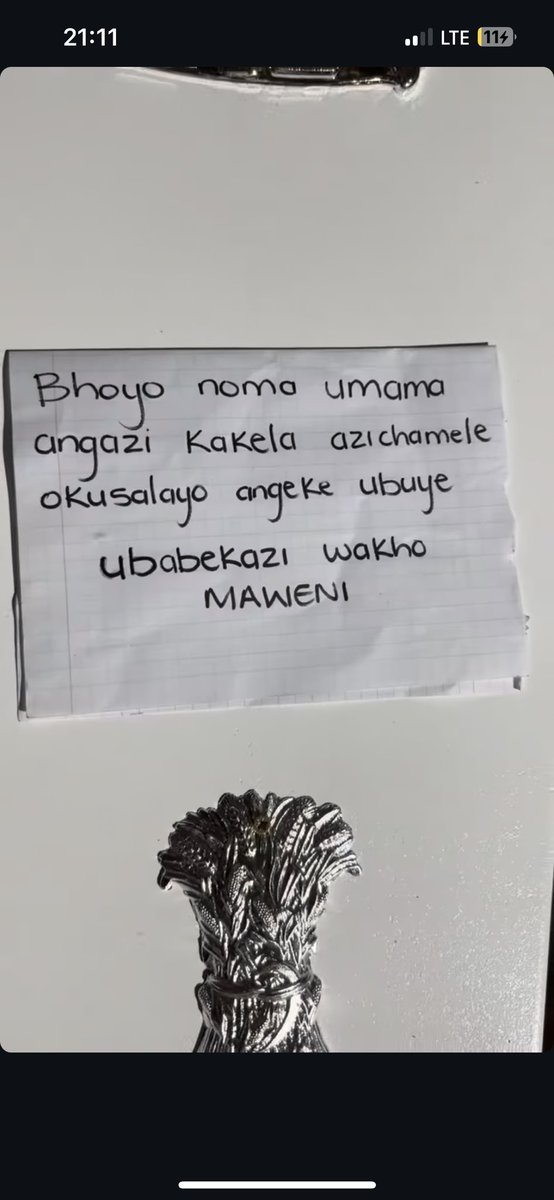 21:11 LTE 11
Bhoyo noma umama
angazi Kakela azichamele
okusalayo angeke ubuye
ubabekazi wakho
MAWENI